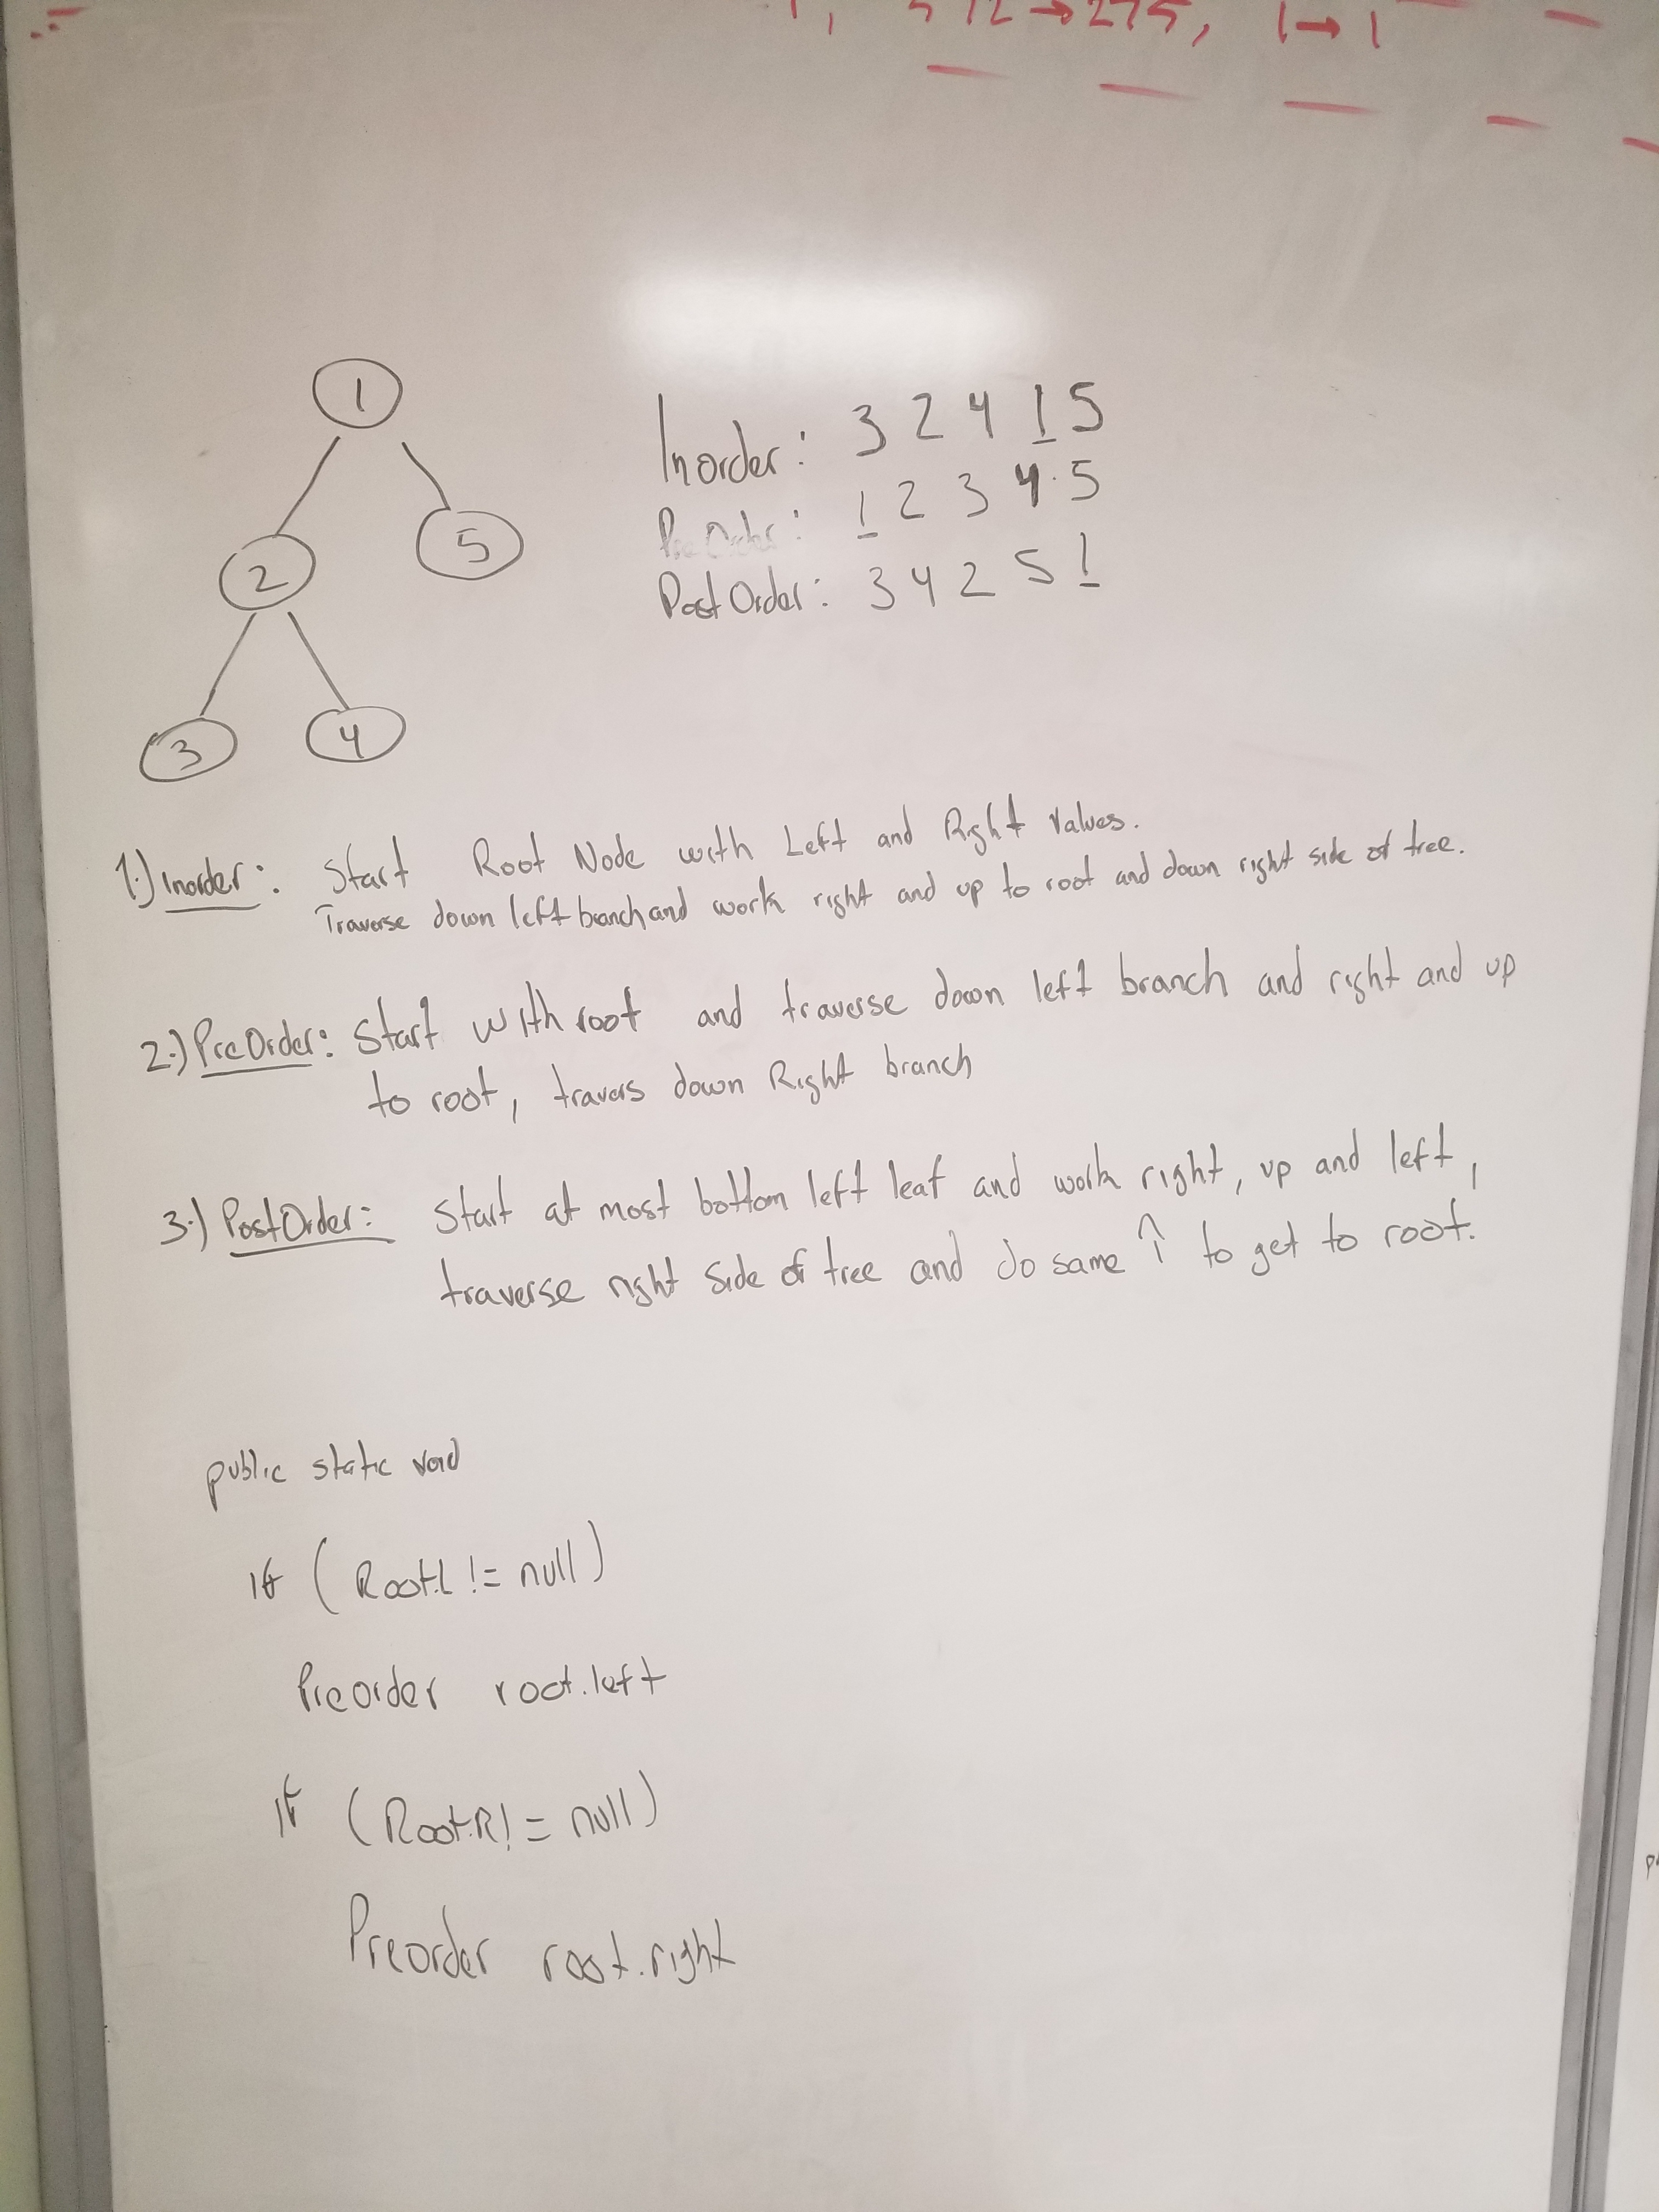 12 → 275, 1 → 1
1
2
5
3
4
Inorder: 3 2 4 1 5
PreOrder: 1 2 3 4 5
PostOrder: 3 4 2 5 1
1.) Inorder: Start Root Node with Left and Right Values.
Traverse down left branch and work right and up to root and down right side of tree.
2.) PreOrder: Start with root and traverse down left branch and right and up
to root, travers down Right branch
3.) PostOrder: Start at most bottom left leaf and work right, up and left,
traverse right side of tree and do same ↑ to get to root.
public static void
if (Root.L != null)
Preorder root.left
if (Root.R != null)
Preorder root.right